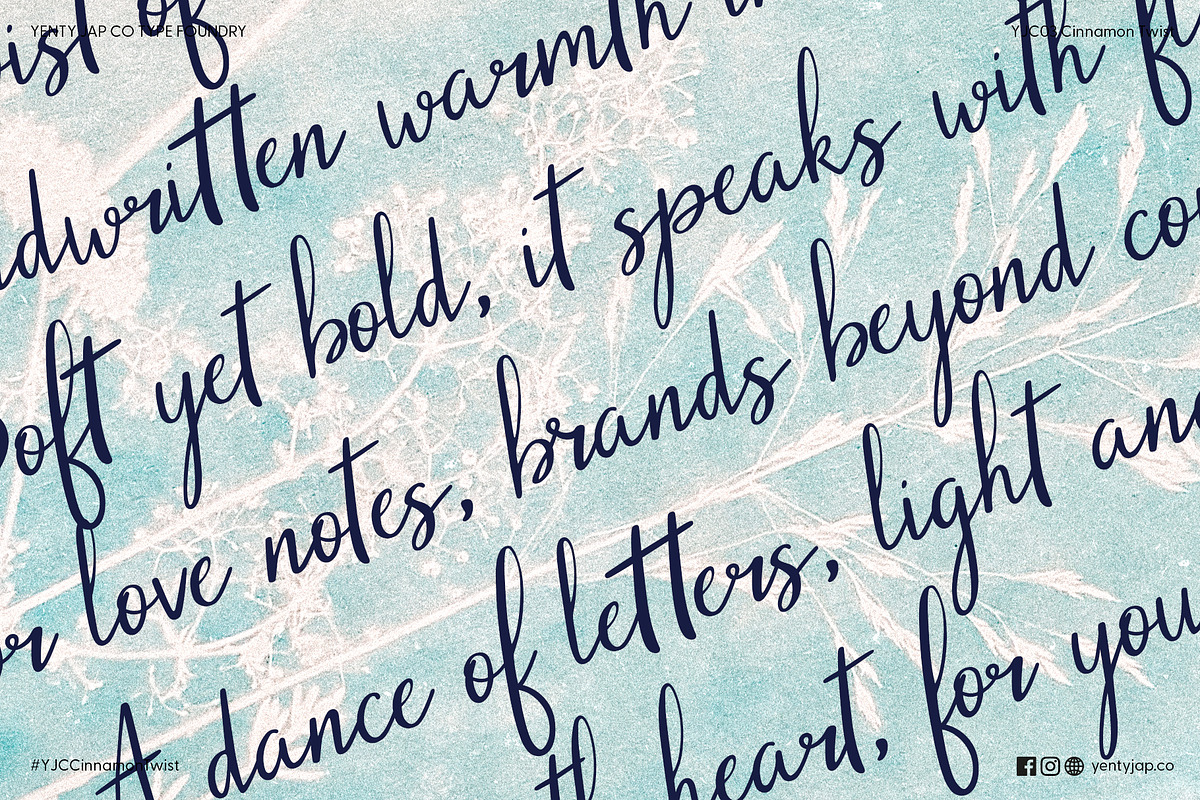 YENTY JAP CO TYPE FOUNDRY
YJC03 Cinnamon Twist
of
written warmth
yet bold, it speaks with
love notes, brands beyond
A dance of letters, light
heart, for
#YJCCinnamonTwist
yentyjap.co